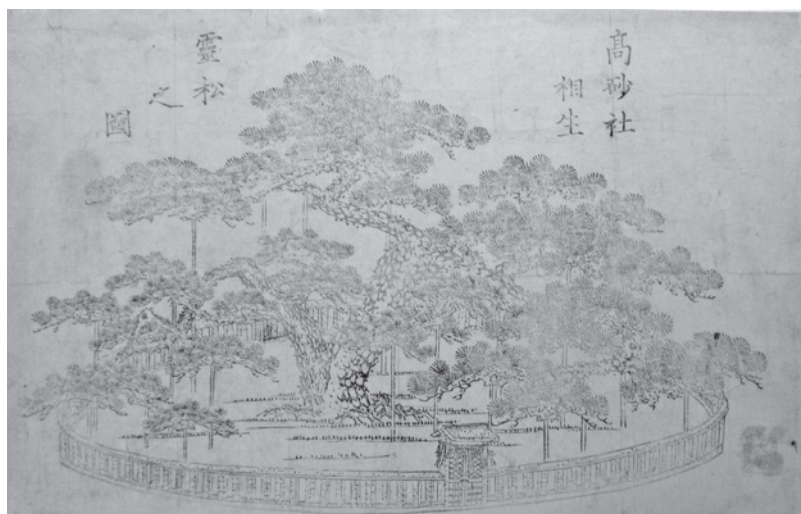 高砂社
相生
霊松
之
圖